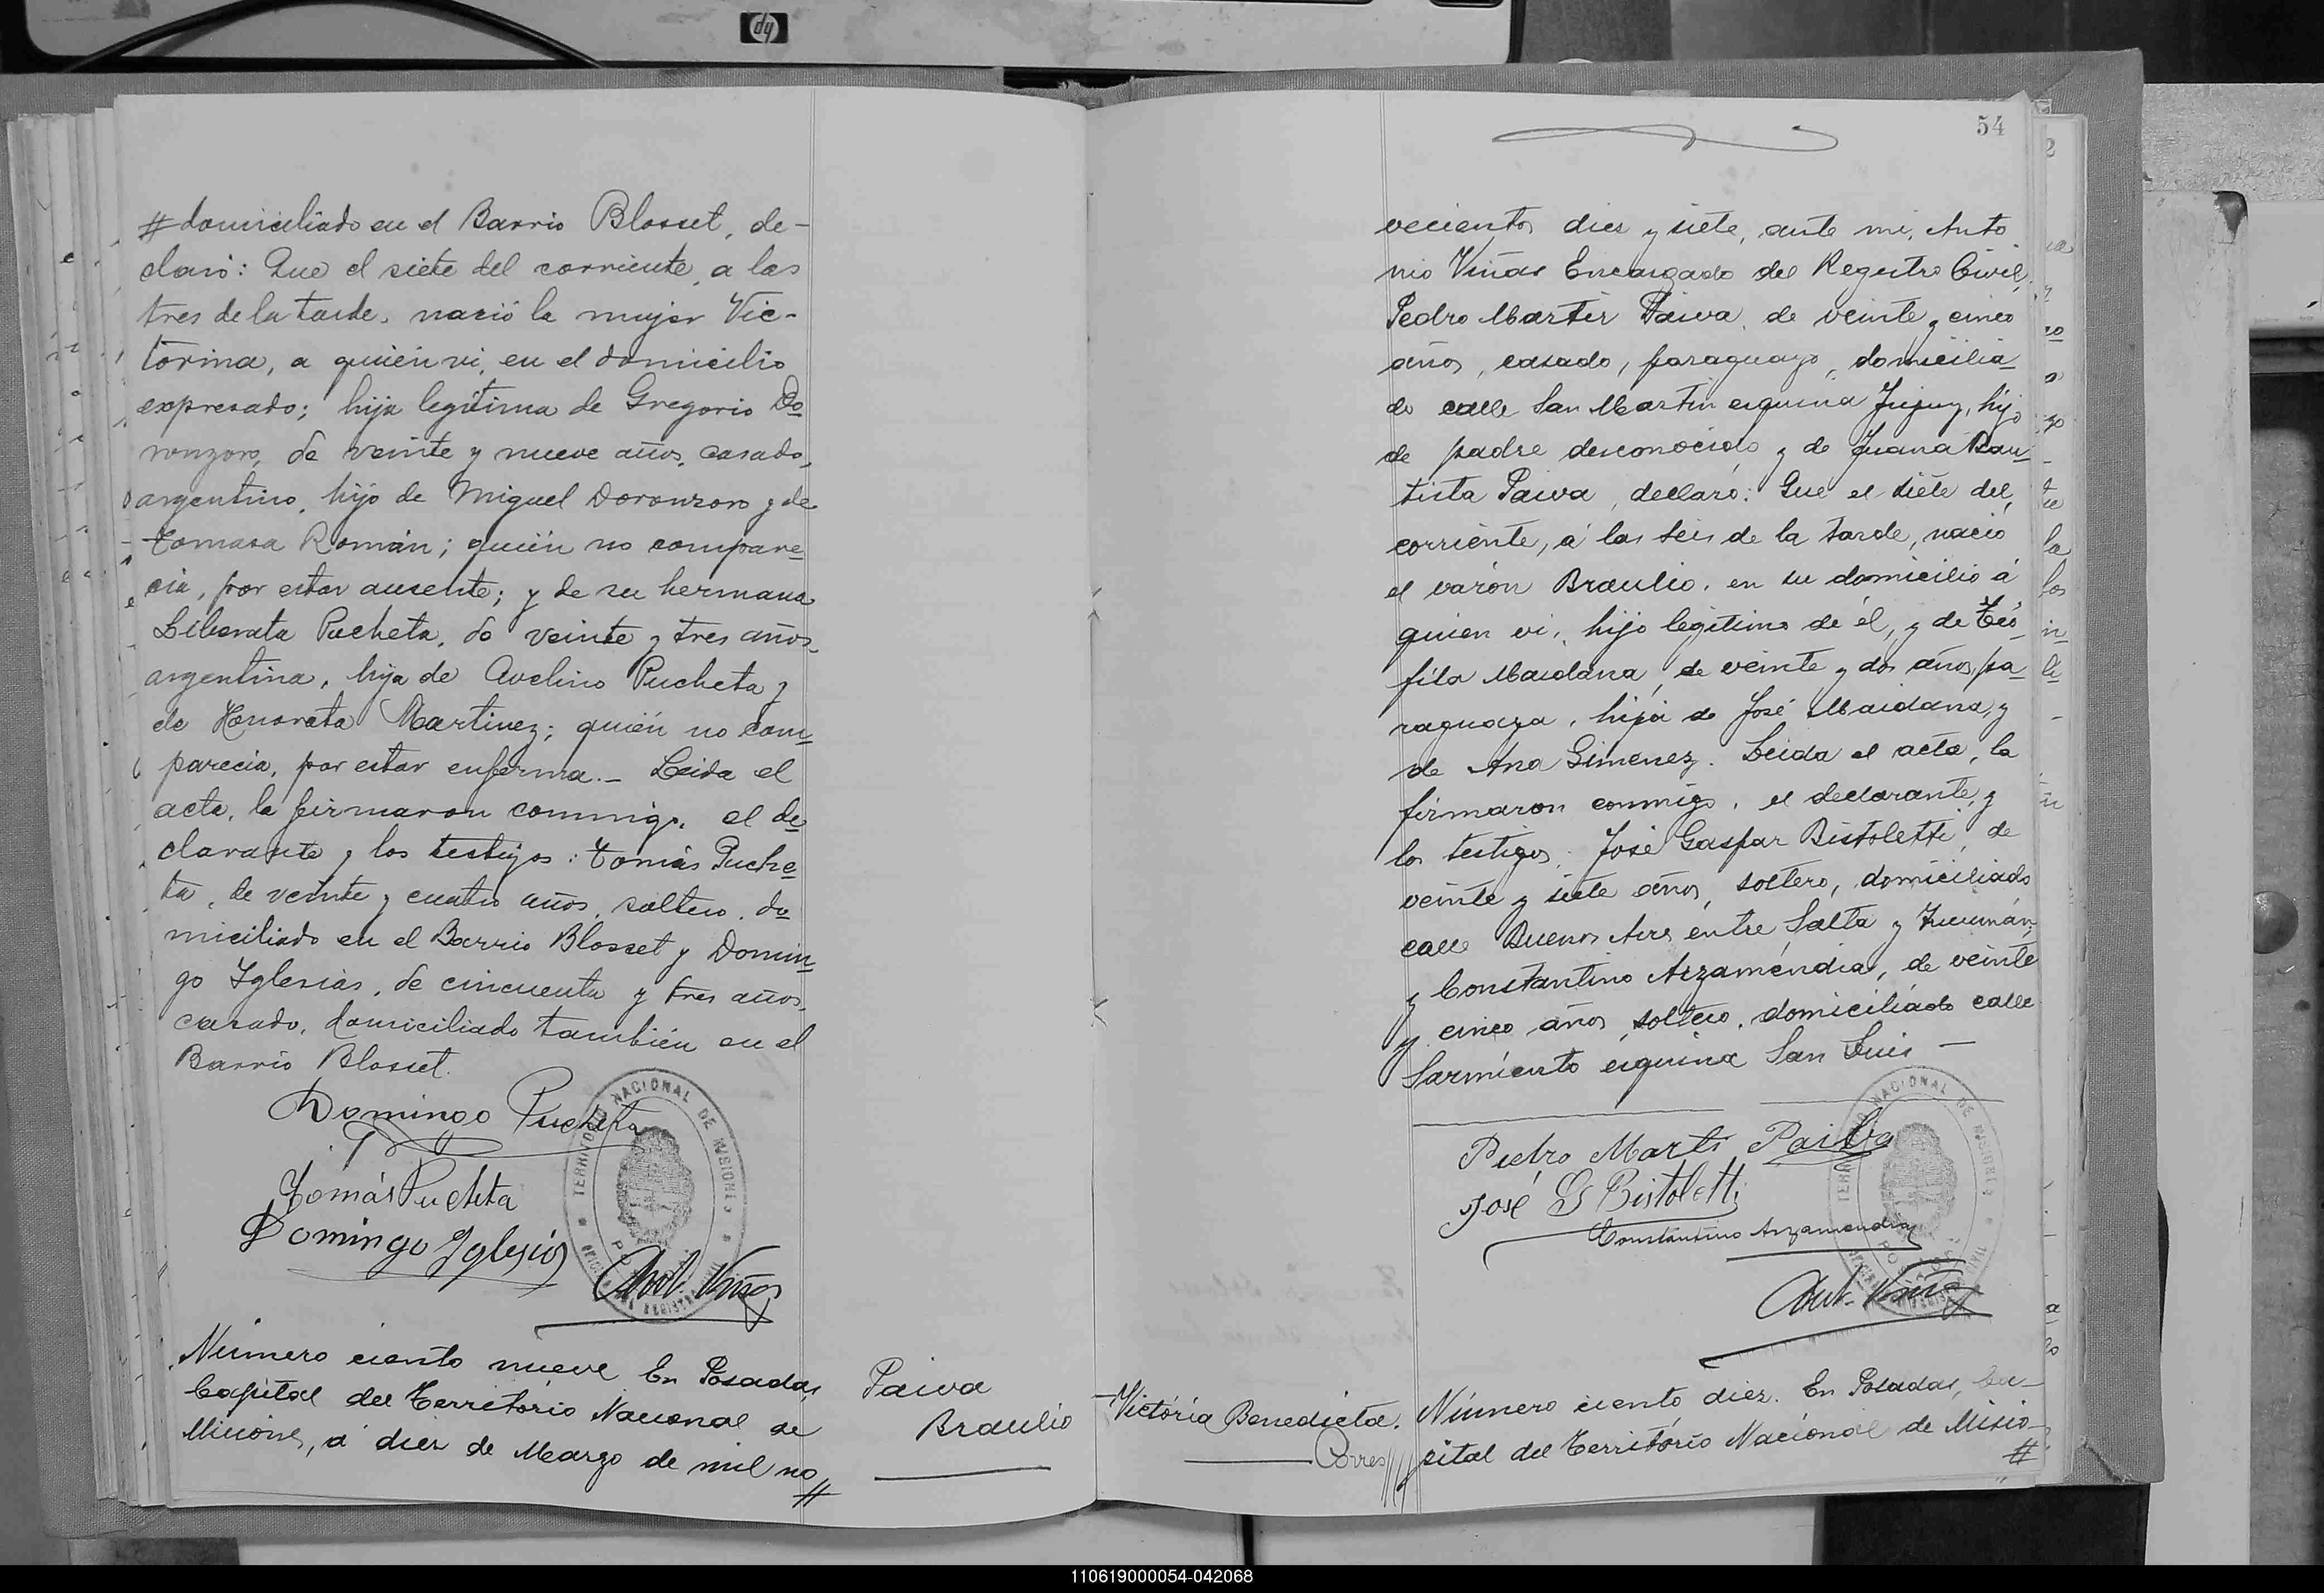 hp
# domiciliado en el Barrio Blosset, de-
claró: Que el siete del corriente, a las
tres de la tarde, nació la mujer Vic-
torina, a quién vi, en el domicilio
expresado; hija legítima de Gregorio Do
ronzoro, de veinte y nueve años, casado,
argentino, hijo de Miguel Doronzoro y de
Tomasa Román; quién no compare
cia, por estar ausente; y de su hermana
Liberata Pucheta, de veinte y tres años,
argentina, hija de Avelino Pucheta y
de Honorata Martinez; quién no com
parecia, por estar enferma.- Leida el
acta, la firmaron conmigo, el de
clarante y los testigos: Tomás Puche
ta, de veinte y cuatro años, soltero, do
miciliado en el Barrio Blosset y Domin
go Iglesias, de cincuenta y tres años,
casado, domiciliado también en el
Barrio Blosset.
Domingo Pucheta
Tomás Pucheta
Domingo Iglesias
Ant. Viñas
TERRITORIO NACIONAL DE MISIONES
Número ciento nueve En Posadas,
Capital del Territorio Nacional de
Misiones, á diez de Marzo de mil no
#
Paiva
Braulio
54
vecientos diez y siete, ante mi, Anto
nio Viñas Encargado del Registro Civil,
Pedro Martir Paiva, de veinte y cinco
años, casado, paraguayo, domicilia
do calle San Martin esquina Jujuy, hijo
de padre desconocido y de Juana Bau
tista Paiva, declaró: Que el siete del
corriente, á las seis de la tarde, nació
el varón Braulio, en su domicilio á
quien vi, hijo legítimo de él, y de Teó
fila Maidana, de veinte y dos años, pa
raguaya, hija de José Maidana, y
de Ana Gimenez. Leida el acta, la
firmaron conmigo, el declarante, y
los testigos, José Gaspar Bistoletti, de
veinte y siete años, soltero, domiciliado
calle Buenos Aires entre Salta y Tucumán;
y Constantino Arzaméndia, de veinte
y cinco años, soltero, domiciliado calle
Sarmiento esquina San Luis —
Pedro Martir Paiva
José G Bistoletti
Constantino Arzamendia
Ant. Viñas
TERRITORIO NACIONAL DE MISIONES
Victória Benedicta.
Torres
Número ciento diez. En Posadas, Ca-
pital del Territorio Nacional de Misio-
#
110619000054-042068